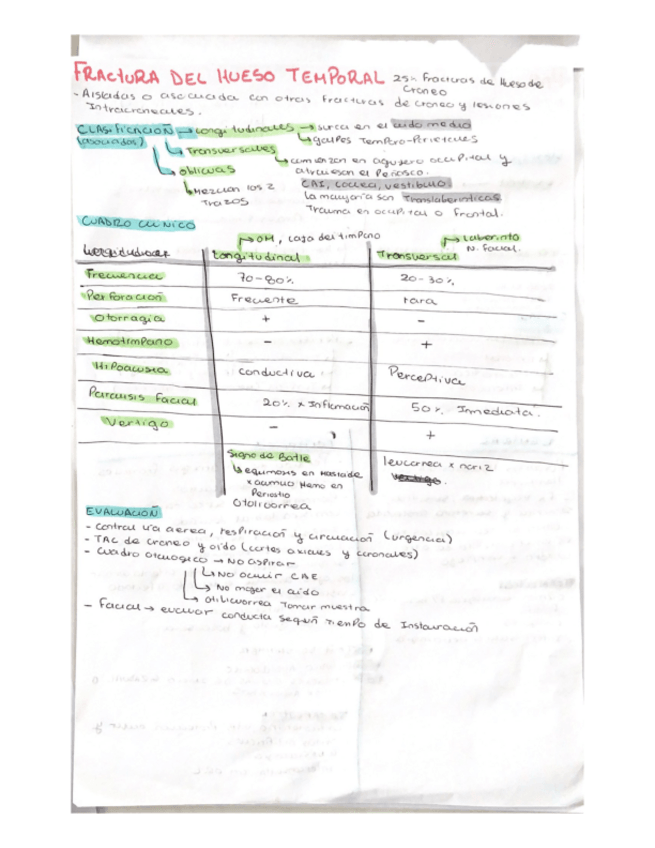 FRACTURA DEL HUESO TEMPORAL 25% Fracturas de Hueso de
Craneo
- Aisladas o asociada con otras fracturas de craneo y lesiones
Intracraneales.
CLASIFICACIÓN → Longitudinales → surca en el oido medio
(asociados) ↳ golpes Temporo-Parietales
↳ Transversales ↳ comienzan en agujero occipital y
atraviesan el Peñasco.
↳ oblicuas CAI, coclea, vestibulo
↳ Mezclan los 2 La mayoría son Translaberinticas
Trazos Trauma en occipital o Frontal.
CUADRO CLINICO
↱ OM, caja del timpano ↱ Laberinto
N. Facial.
Longitudinal Transversal
Frecuencia 70-80% 20-30%
Perforación Frecuente rara
Otorragia + -
Hemotimpano - +
Hipoacusia conductiva Perceptiva
Paralisis Facial 20% x Inflamación 50% Inmediata.
Vertigo - +
Signo de Batle
↳ equimosis en Mastoide
x acumulo Hemo en
Periostio
Otolicuorrea
x nariz
EVALUACIÓN
- Control vía aerea, respiración y circulación (urgencia)
- TAC de craneo y oído (cortes axiales y coronales)
- Cuadro otologico → No aspirar
↳ No ocluir CAE
↳ No mojar el oido
↳ Otolicuorrea Tomar muestra
- Facial → evaluar conducta según tiempo de Instauración